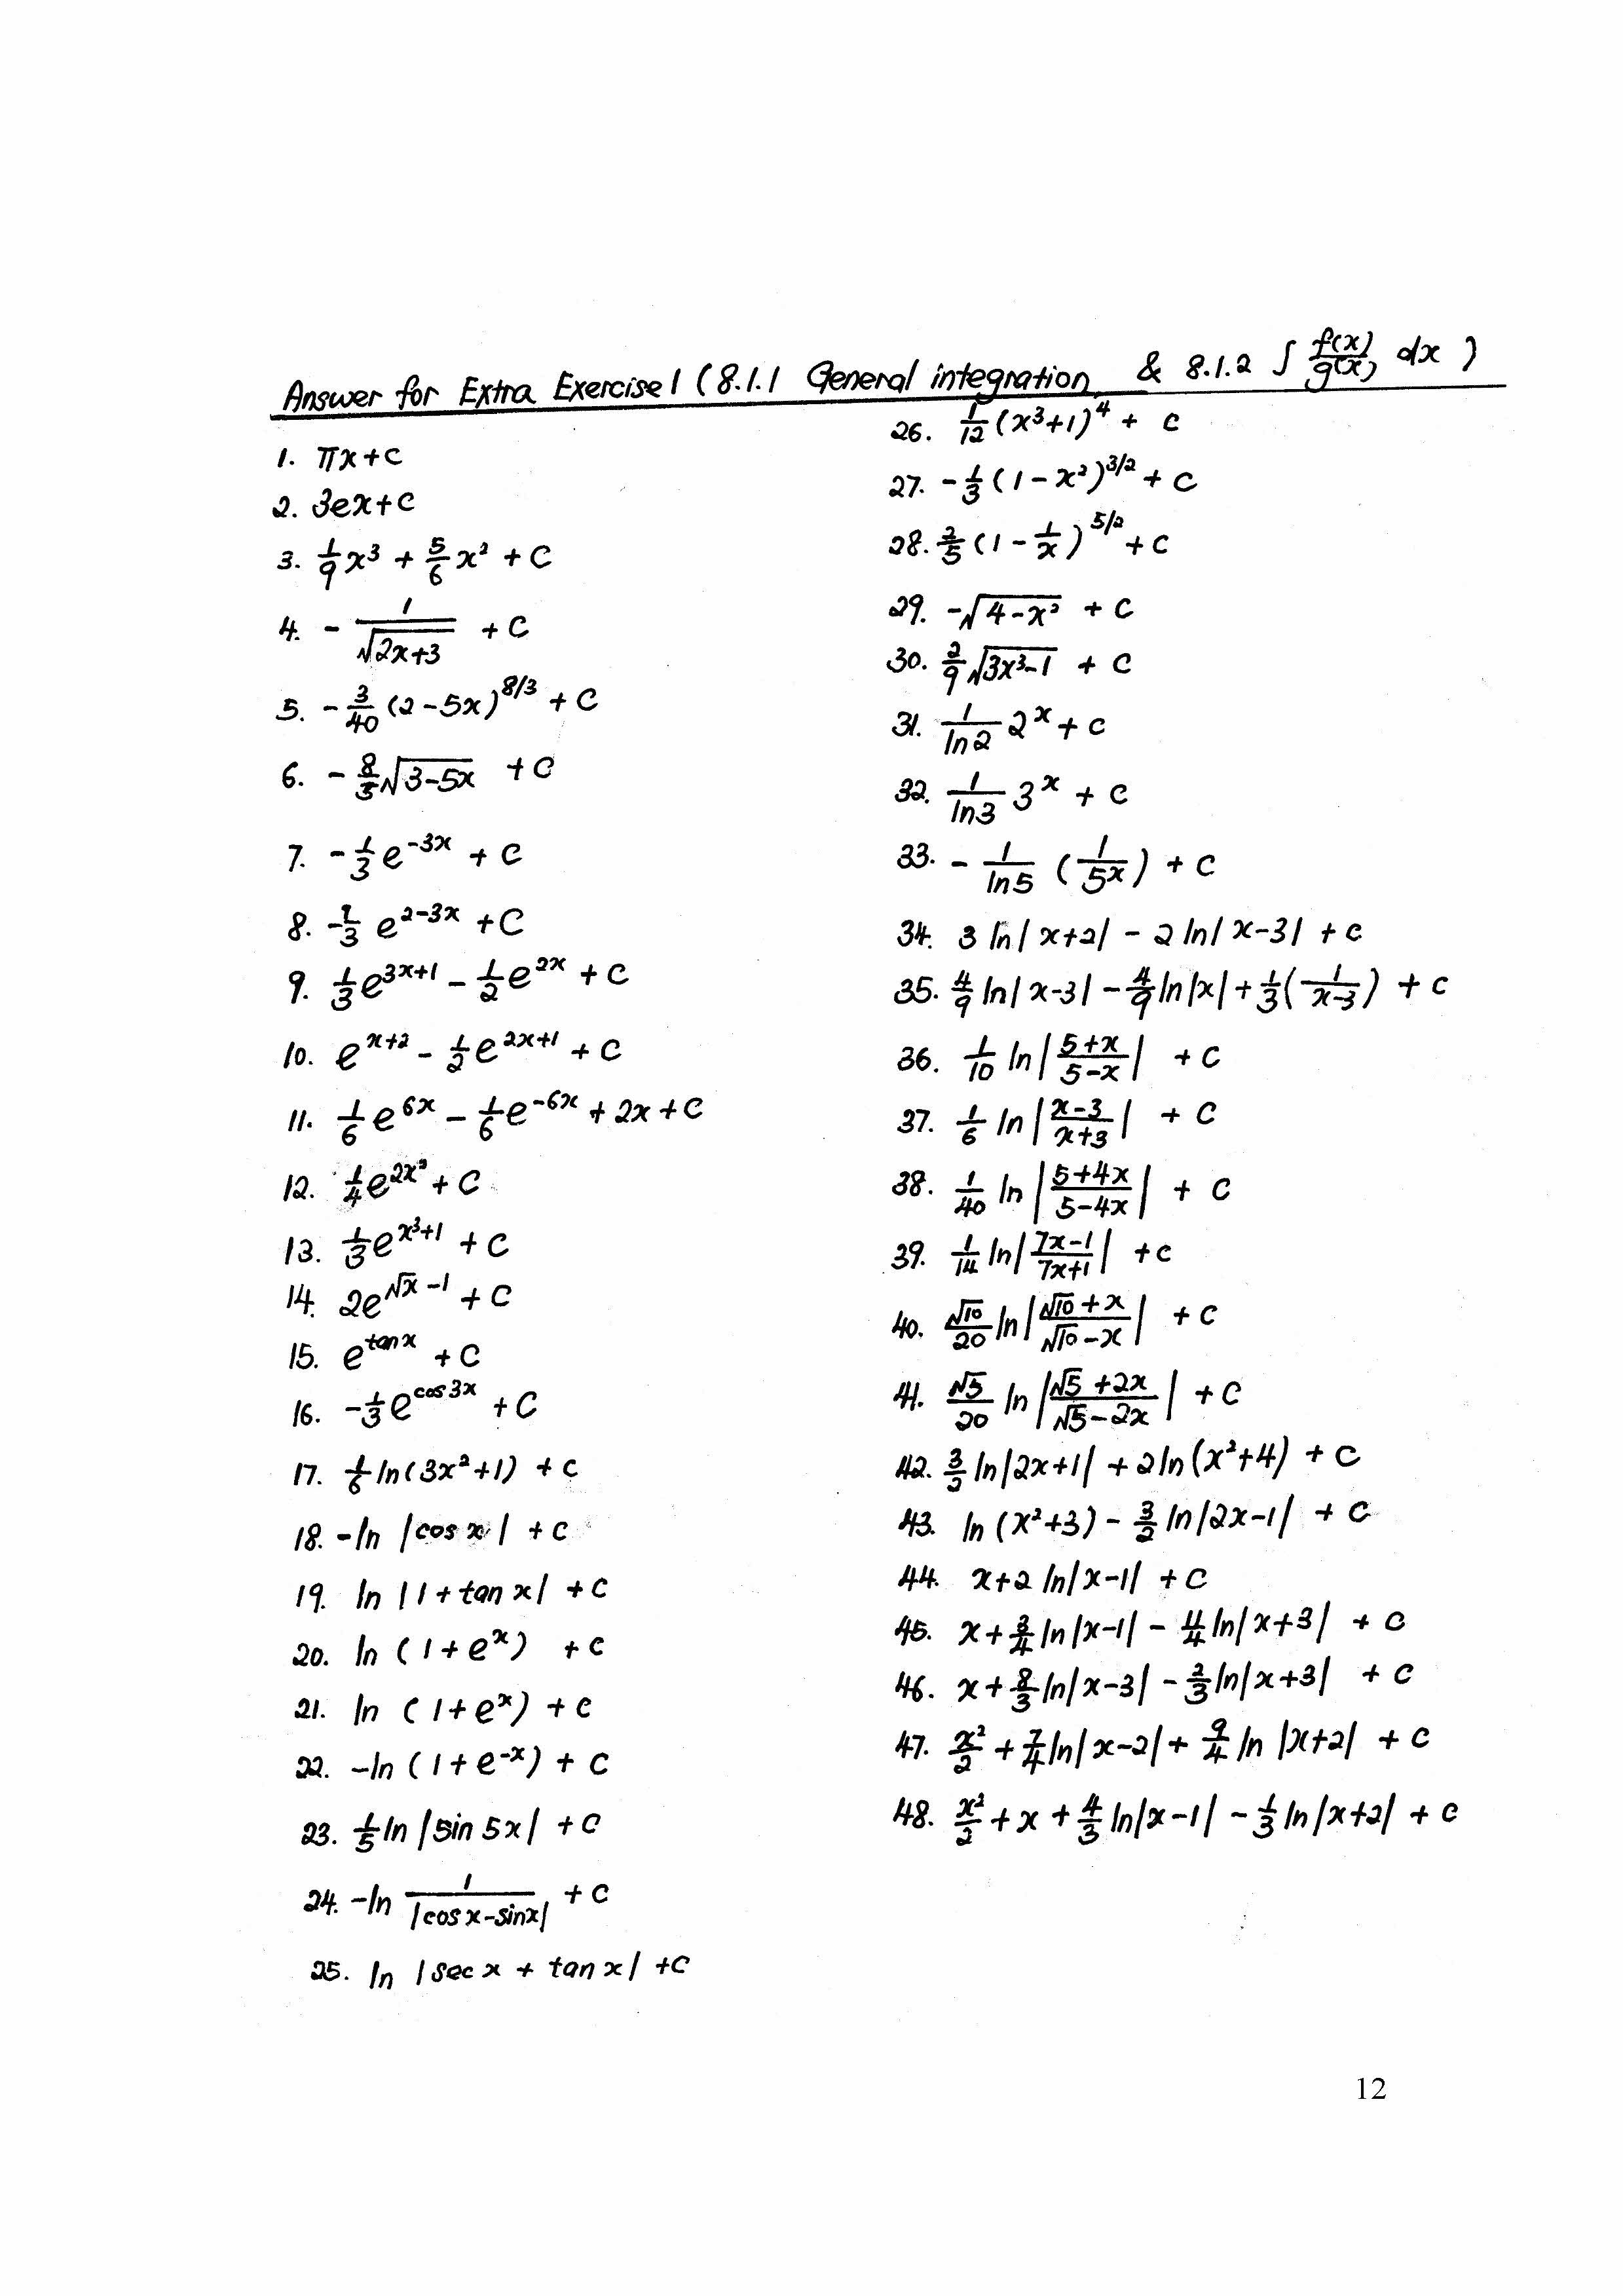 Answer for Extra Exercise 1 (8.1.1 General integration & 8.1.2 ∫ f(x)/g(x) dx)
1. πx + c
2. 3ex + c
3. 1/9 x³ + 5/6 x² + C
4. - 1/√(2x+3) + C
5. - 3/40 (2-5x)^(8/3) + C
6. - 8/5 √(3-5x) + C
7. - 1/3 e^(-3x) + C
8. - 1/3 e^(2-3x) + C
9. 1/3 e^(3x+1) - 1/2 e^(2x) + C
10. e^(x+2) - 1/2 e^(2x+1) + C
11. 1/6 e^(6x) - 1/6 e^(-6x) + 2x + C
12. 1/4 e^(2x²) + C
13. 1/3 e^(x³+1) + C
14. 2e^(√x - 1) + C
15. e^(tan x) + C
16. - 1/3 e^(cos 3x) + C
17. 1/6 ln(3x²+1) + C
18. -ln |cos x| + C
19. ln |1 + tan x| + C
20. ln (1 + e^x) + C
21. ln (1 + e^x) + C
22. -ln (1 + e^(-x)) + C
23. 1/5 ln |sin 5x| + C
24. -ln 1/|cos x - sin x| + C
25. ln |sec x + tan x| + C
26. 1/12 (x³+1)⁴ + C
27. - 1/3 (1 - x²)^(3/2) + C
28. 2/5 (1 - 1/x)^(5/2) + C
29. -√(4-x²) + C
30. 2/9 √(3x³-1) + C
31. 1/ln2 2^x + C
32. 1/ln3 3^x + C
33. - 1/ln5 (1/5^x) + C
34. 3 ln|x+2| - 2 ln|x-3| + C
35. 4/9 ln|x-3| - 4/9 ln|x| + 1/3 (1/(x-3)) + C
36. 1/10 ln|(5+x)/(5-x)| + C
37. 1/6 ln|(x-3)/(x+3)| + C
38. 1/40 ln|(5+4x)/(5-4x)| + C
39. 1/14 ln|(7x-1)/(7x+1)| + C
40. √10/20 ln|(√10+x)/(√10-x)| + C
41. √5/20 ln|(√5+2x)/(√5-2x)| + C
42. 3/2 ln|2x+1| + 2ln(x²+4) + C
43. ln (x²+3) - 3/2 ln|2x-1| + C
44. x+2 ln|x-1| + C
45. x + 3/4 ln|x-1| - 11/4 ln|x+3| + C
46. x + 8/3 ln|x-3| - 2/3 ln|x+3| + C
47. x²/2 + 7/4 ln|x-2| + 9/4 ln |x+2| + C
48. x²/2 + x + 4/3 ln|x-1| - 1/3 ln|x+2| + C
12